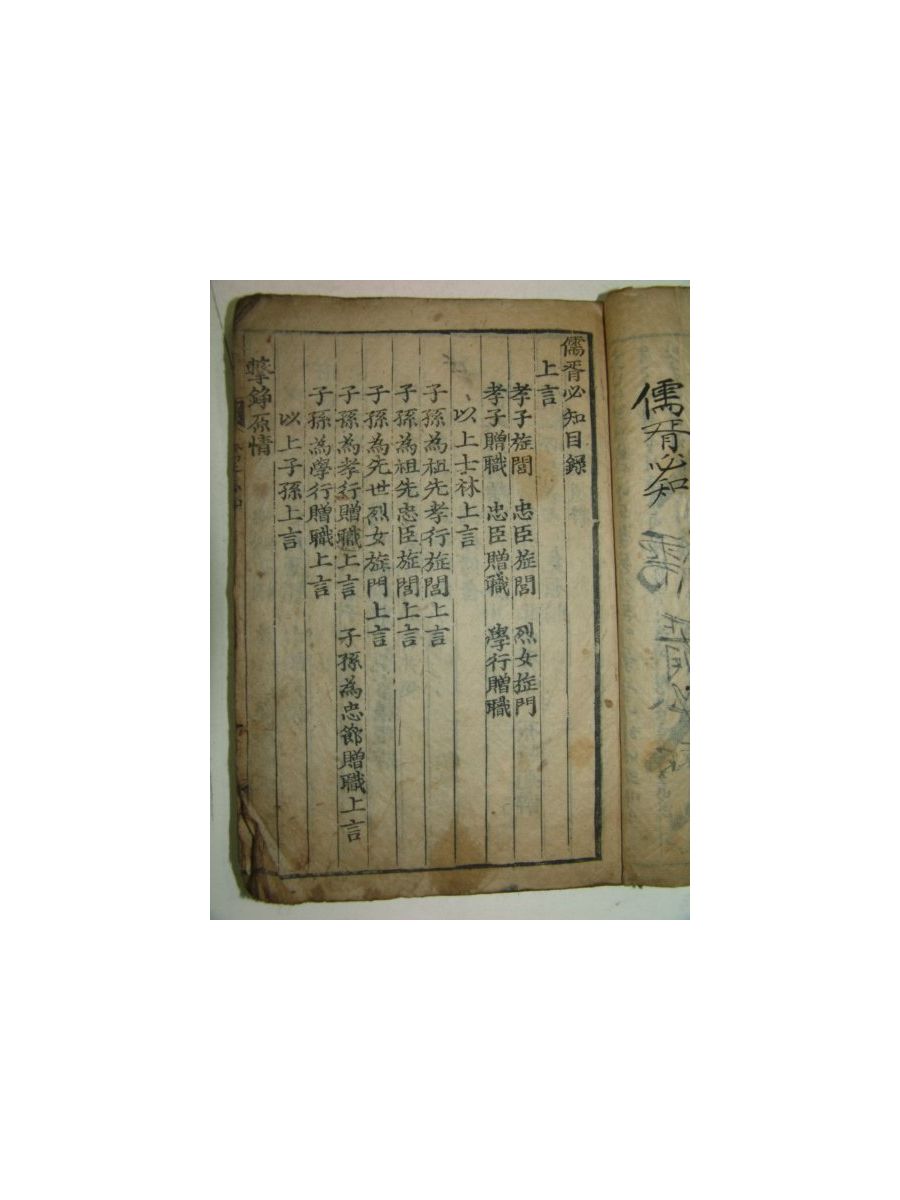 儒胥必知
儒胥必知目錄
上言
孝子旌閭 忠臣旌閭 烈女旌門
孝子贈職 忠臣贈職 學行贈職
以上士林上言
子孫為祖先孝行旌閭上言
子孫為祖先忠臣旌閭上言
子孫為先世烈女旌門上言
子孫為孝行贈職上言 子孫為忠節贈職上言
子孫為學行贈職上言
以上子孫上言
擊錚原情